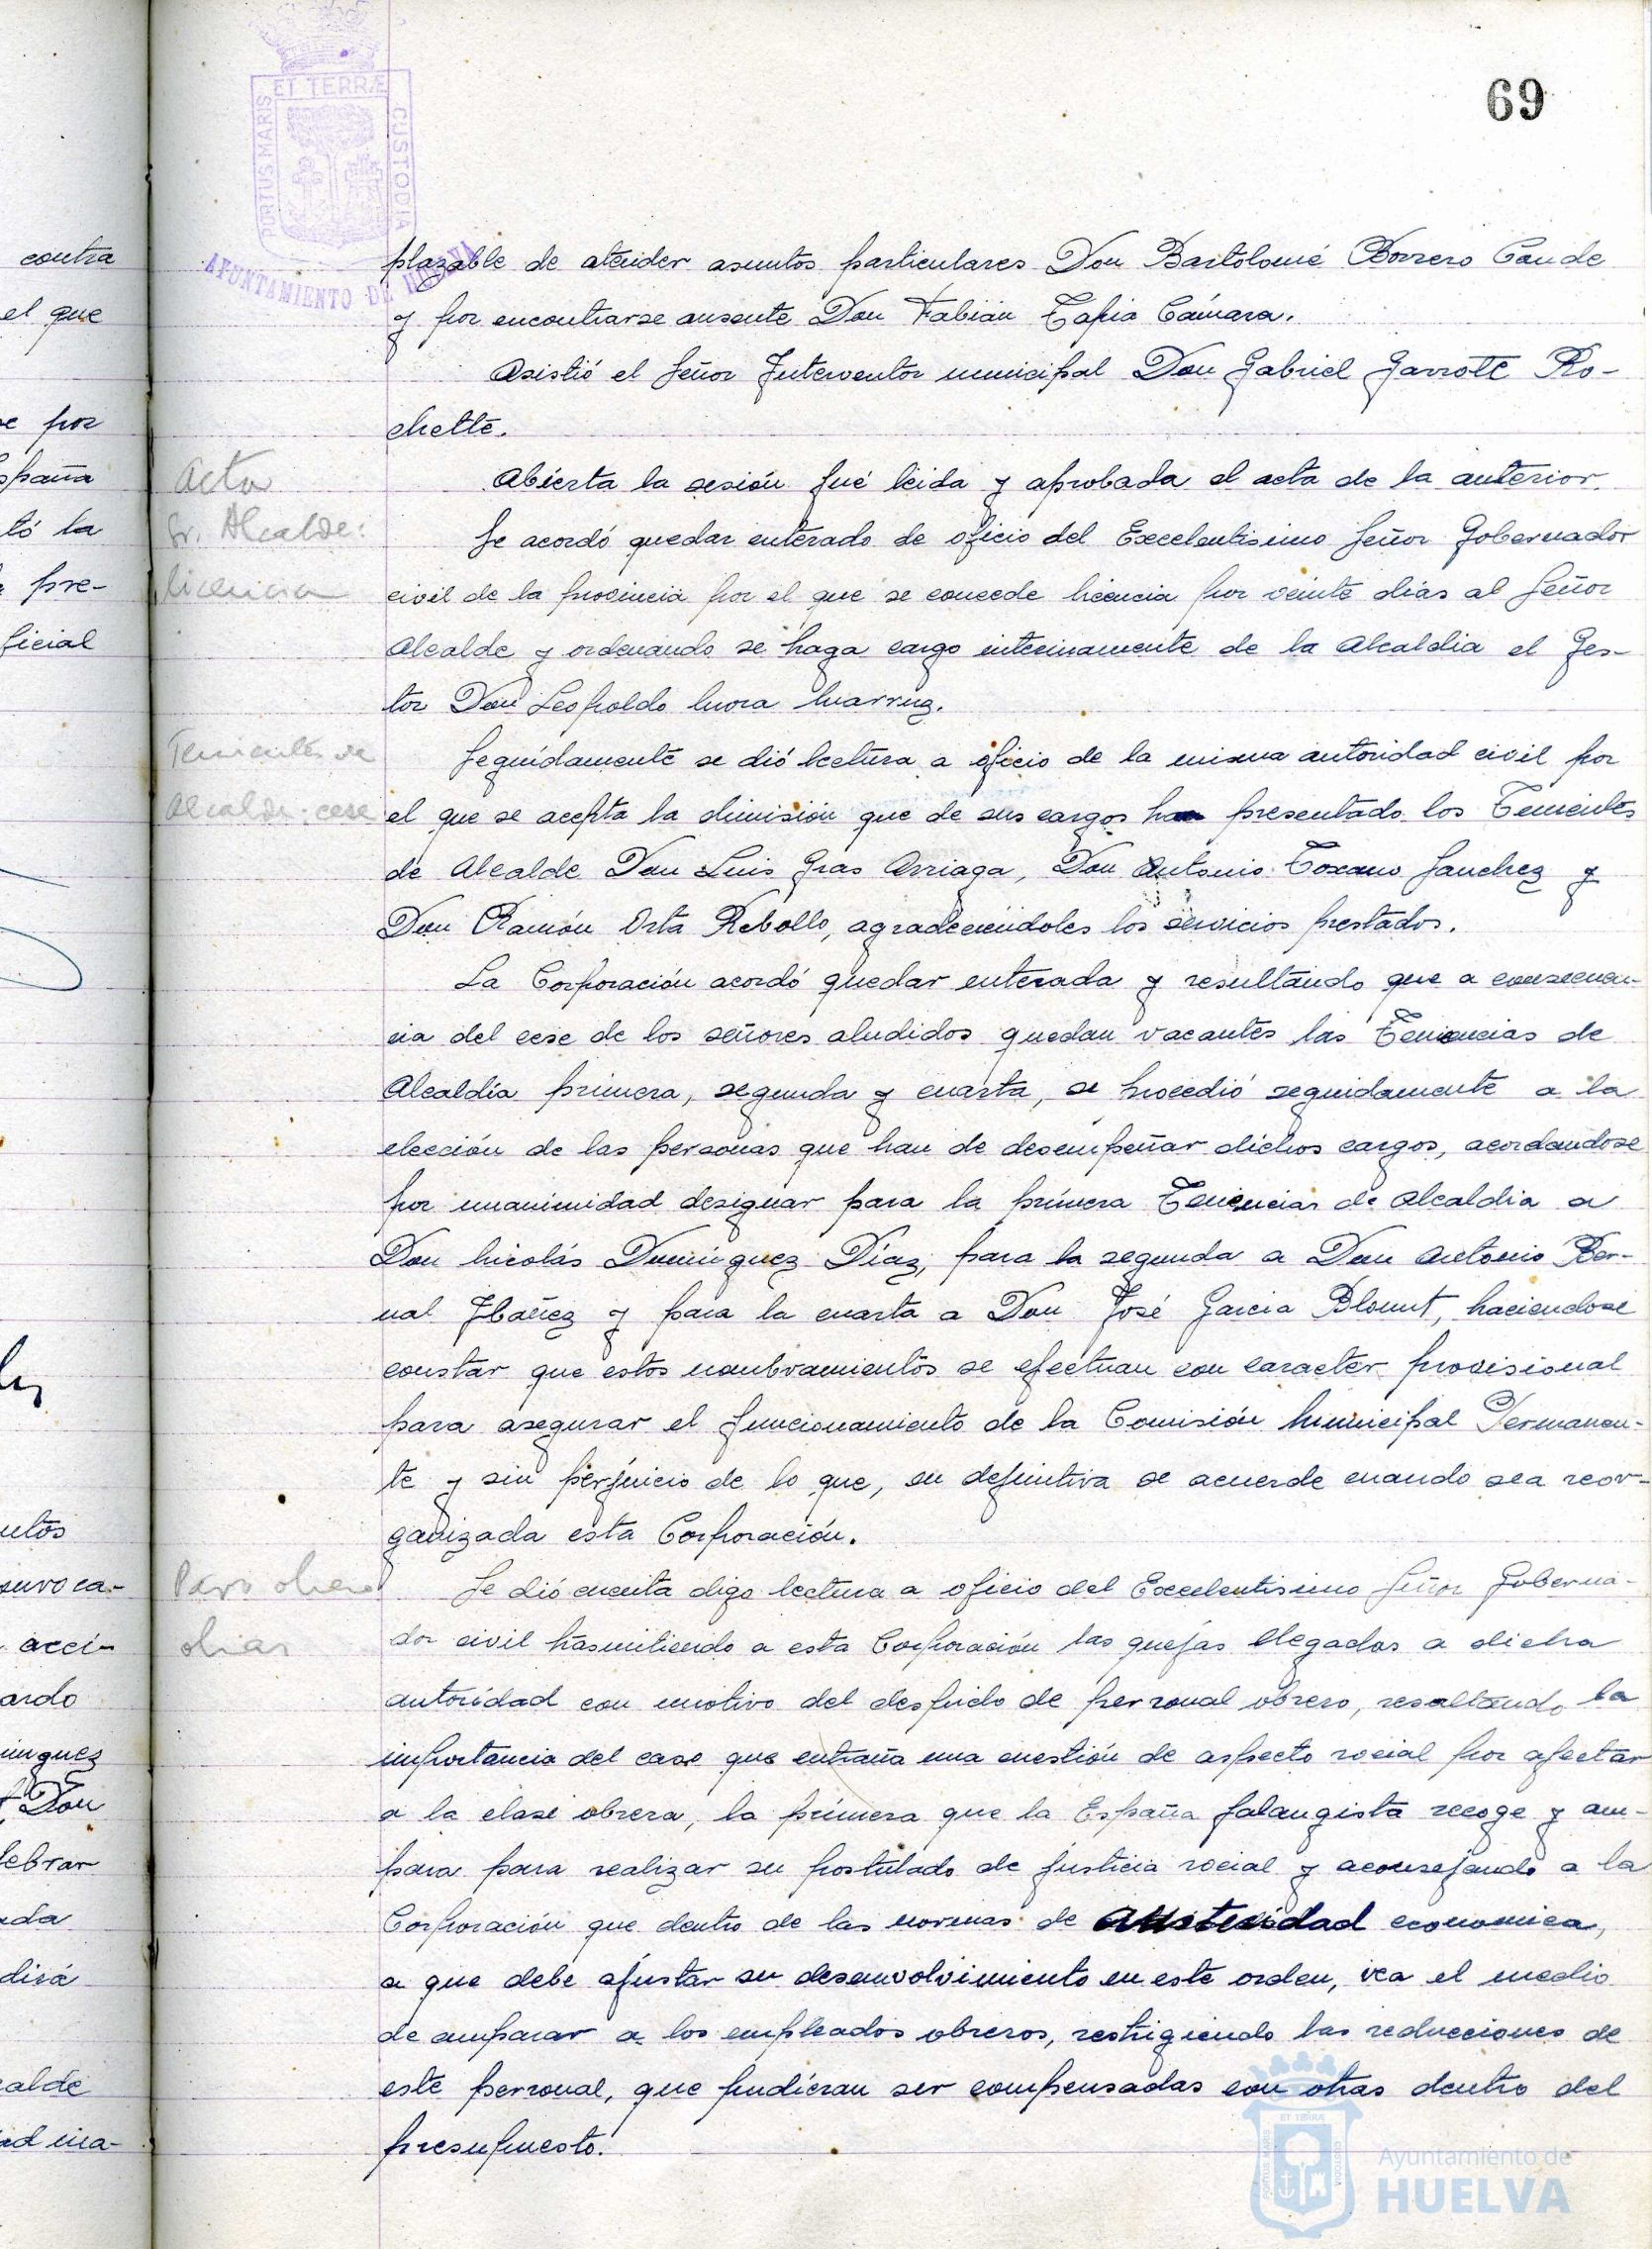 69
PORTUS MARIS ET TERRÆ CUSTODIA
AYUNTAMIENTO DE HUELVA
plazable de atender asuntos particulares Don Bartolomé Borrero Conde
y por encontrarse ausente Don Fabián Tapia Cámara.
Asistió el Señor Interventor municipal Don Gabriel Garrote Ro-
chette.
Acta
Abierta la sesión fué leida y aprobada el acta de la anterior.
Sr. Alcalde:
Se acordó quedar enterado de oficio del Excelentisimo Señor Gobernador
licencia
civil de la provincia por el que se concede licencia por veinte dias al Señor
Alcalde y ordenando se haga cargo interinamente de la Alcaldia el Ges-
tor Don Leopoldo Mora Marruz.
Tenientes de
Seguidamente se dió lectura a oficio de la misma autoridad civil por
Alcalde: cese
el que se acepta la dimisión que de sus cargos han presentado los Tenientes
de Alcalde Don Luis Gras Arriaga, Don Antonio Toscano Sanchez y
Don Ramón Orta Rebollo, agradeciéndoles los servicios prestados.
La Corporación acordó quedar enterada y resultando que a consecuen-
cia del cese de los señores aludidos quedan vacantes las Tenencias de
Alcaldía primera, segunda y cuarta, se procedió seguidamente a la
elección de las personas que han de desempeñar dichos cargos, acordandose
por unanimidad designar para la primera Tenencias de Alcaldia a
Don Nicolás Dominguez Díaz, para la segunda a Don Antonio Ber-
nal Ibáñez y para la cuarta a Don José Garcia Blount, haciendose
constar que estos nombramientos se efectuan con caracter provisional
para asegurar el funcionamiento de la Comisión Municipal Permanen-
te y sin perjuicio de lo que, en definitiva se acuerde cuando sea reor-
ganizada esta Corporación.
Paro obrero
Se dió cuenta digo lectura a oficio del Excelentisimo Señor Goberna-
dor civil trasmitiendo a esta Corporación las quejas llegadas a dicha
autoridad con motivo del despido de personal obrero, resaltando la
importancia del caso que entraña una cuestión de aspecto social por afectar
a la clase obrera, la primera que la España falangista recoge y am-
para para realizar su postulado de justicia social y aconsejando a la
Corporación que dentro de las normas de austeridad economica,
a que debe ajustar su desenvolvimiento en este orden, vea el medio
de amparar a los empleados obreros, restrigiendo las reducciones de
este personal, que pudieran ser compensadas con otras dentro del
presupuesto.
contra
el que
por
España
tó la
pre-
ficial
ardo
Don
calde
Ayuntamiento de
HUELVA